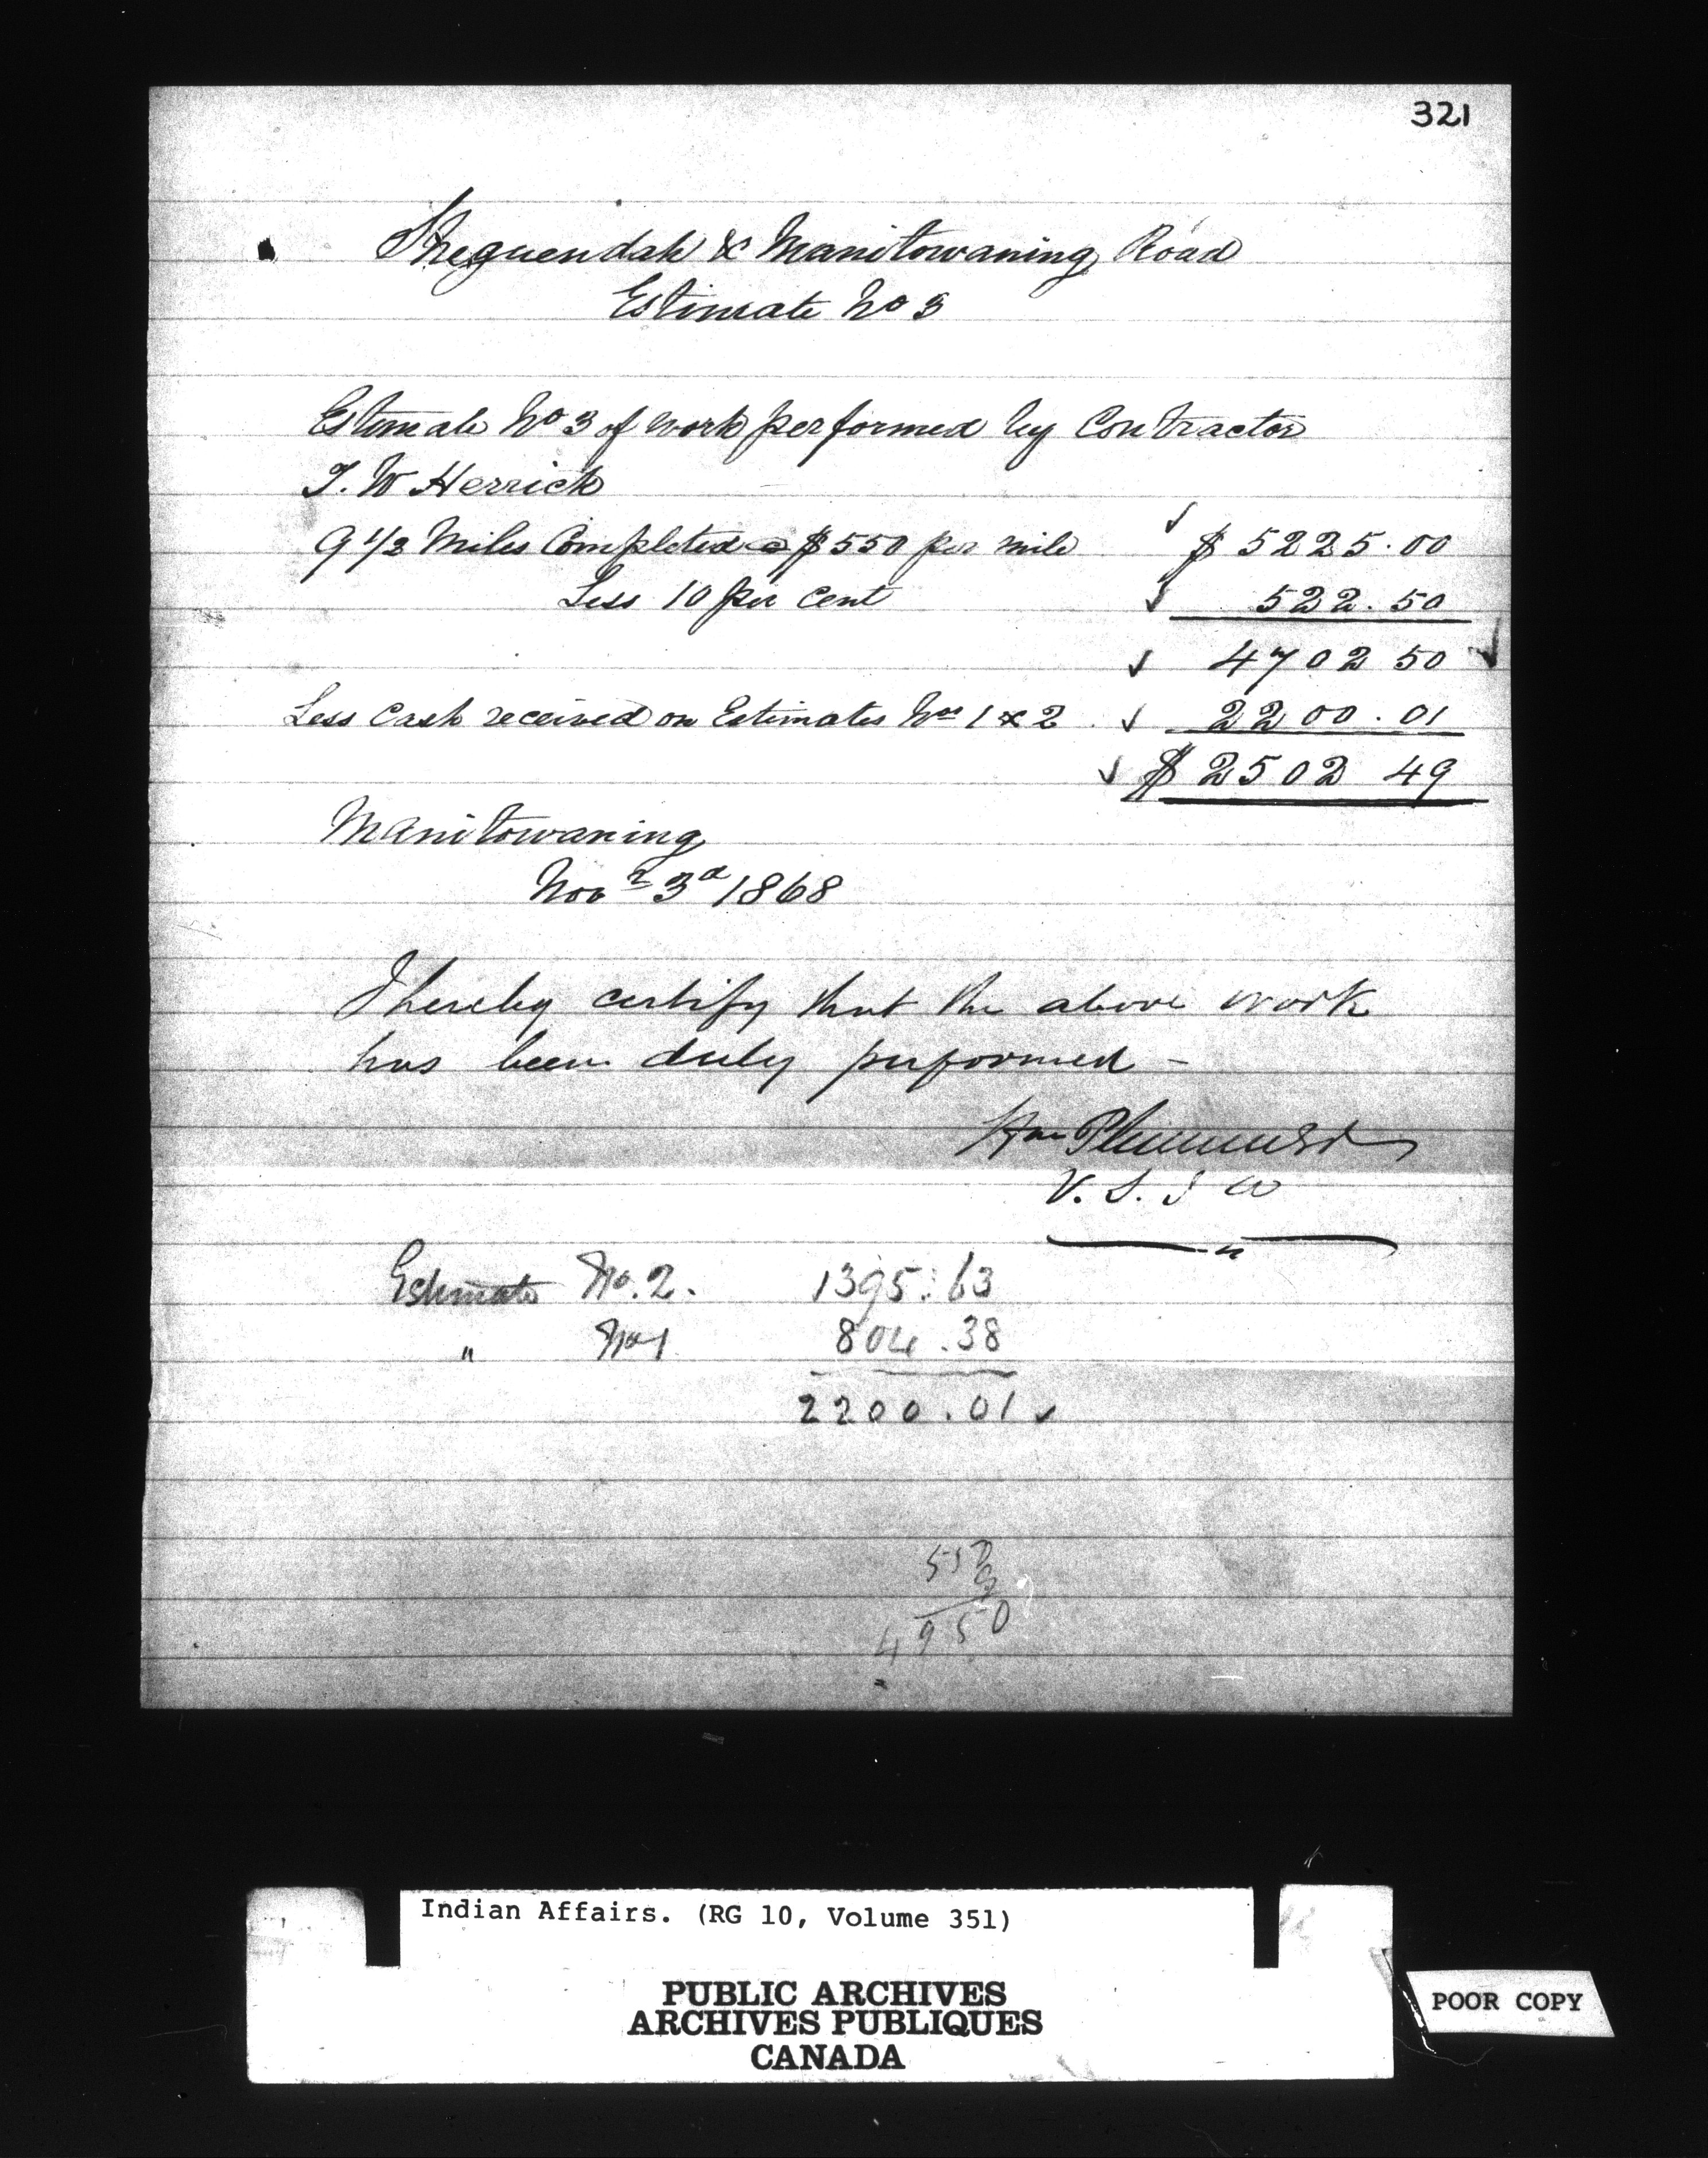 321
Sheguendah & Manitowaning Road
Estimate No 3
Estimate No 3 of work performed by Contractor
T. W Herrick
9 1/2 Miles Completed @ $550 per mile $ 5225.00
Less 10 per Cent 522.50
4702 50
Less Cash received on Estimates Nos 1 & 2 2200.01
$ 2502 49
Manitowaning
Novr 3d 1868
I hereby certify that the above work
has been duly performed -
Wm Plummer
V. S. I
Estimate No. 2. 1395.63
" No 1 804.38
2200.01
550
9
4950
Indian Affairs. (RG 10, Volume 351)
PUBLIC ARCHIVES
ARCHIVES PUBLIQUES
CANADA
POOR COPY